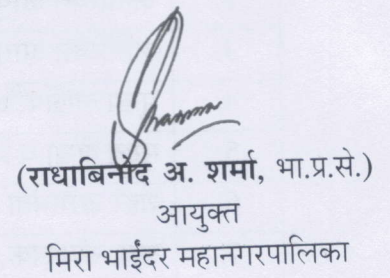 Sharma
(राधाबिनोद अ. शर्मा, भा.प्र.से.)
आयुक्त
मिरा भाईंदर महानगरपालिका